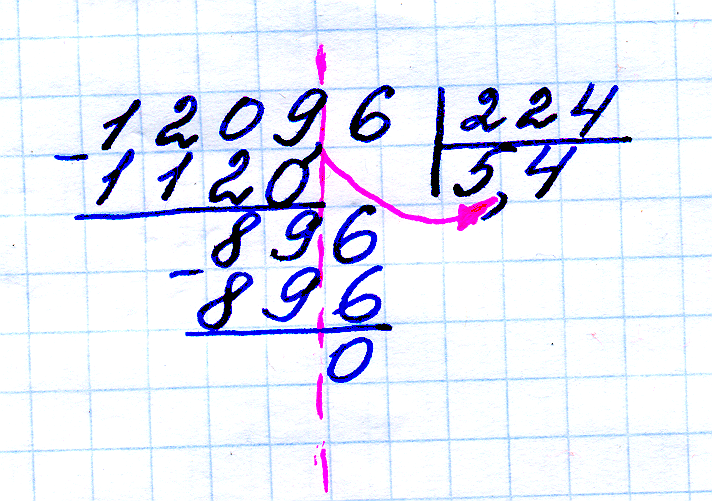 1209,6 | 224
-1120 5,4
896
-896
0